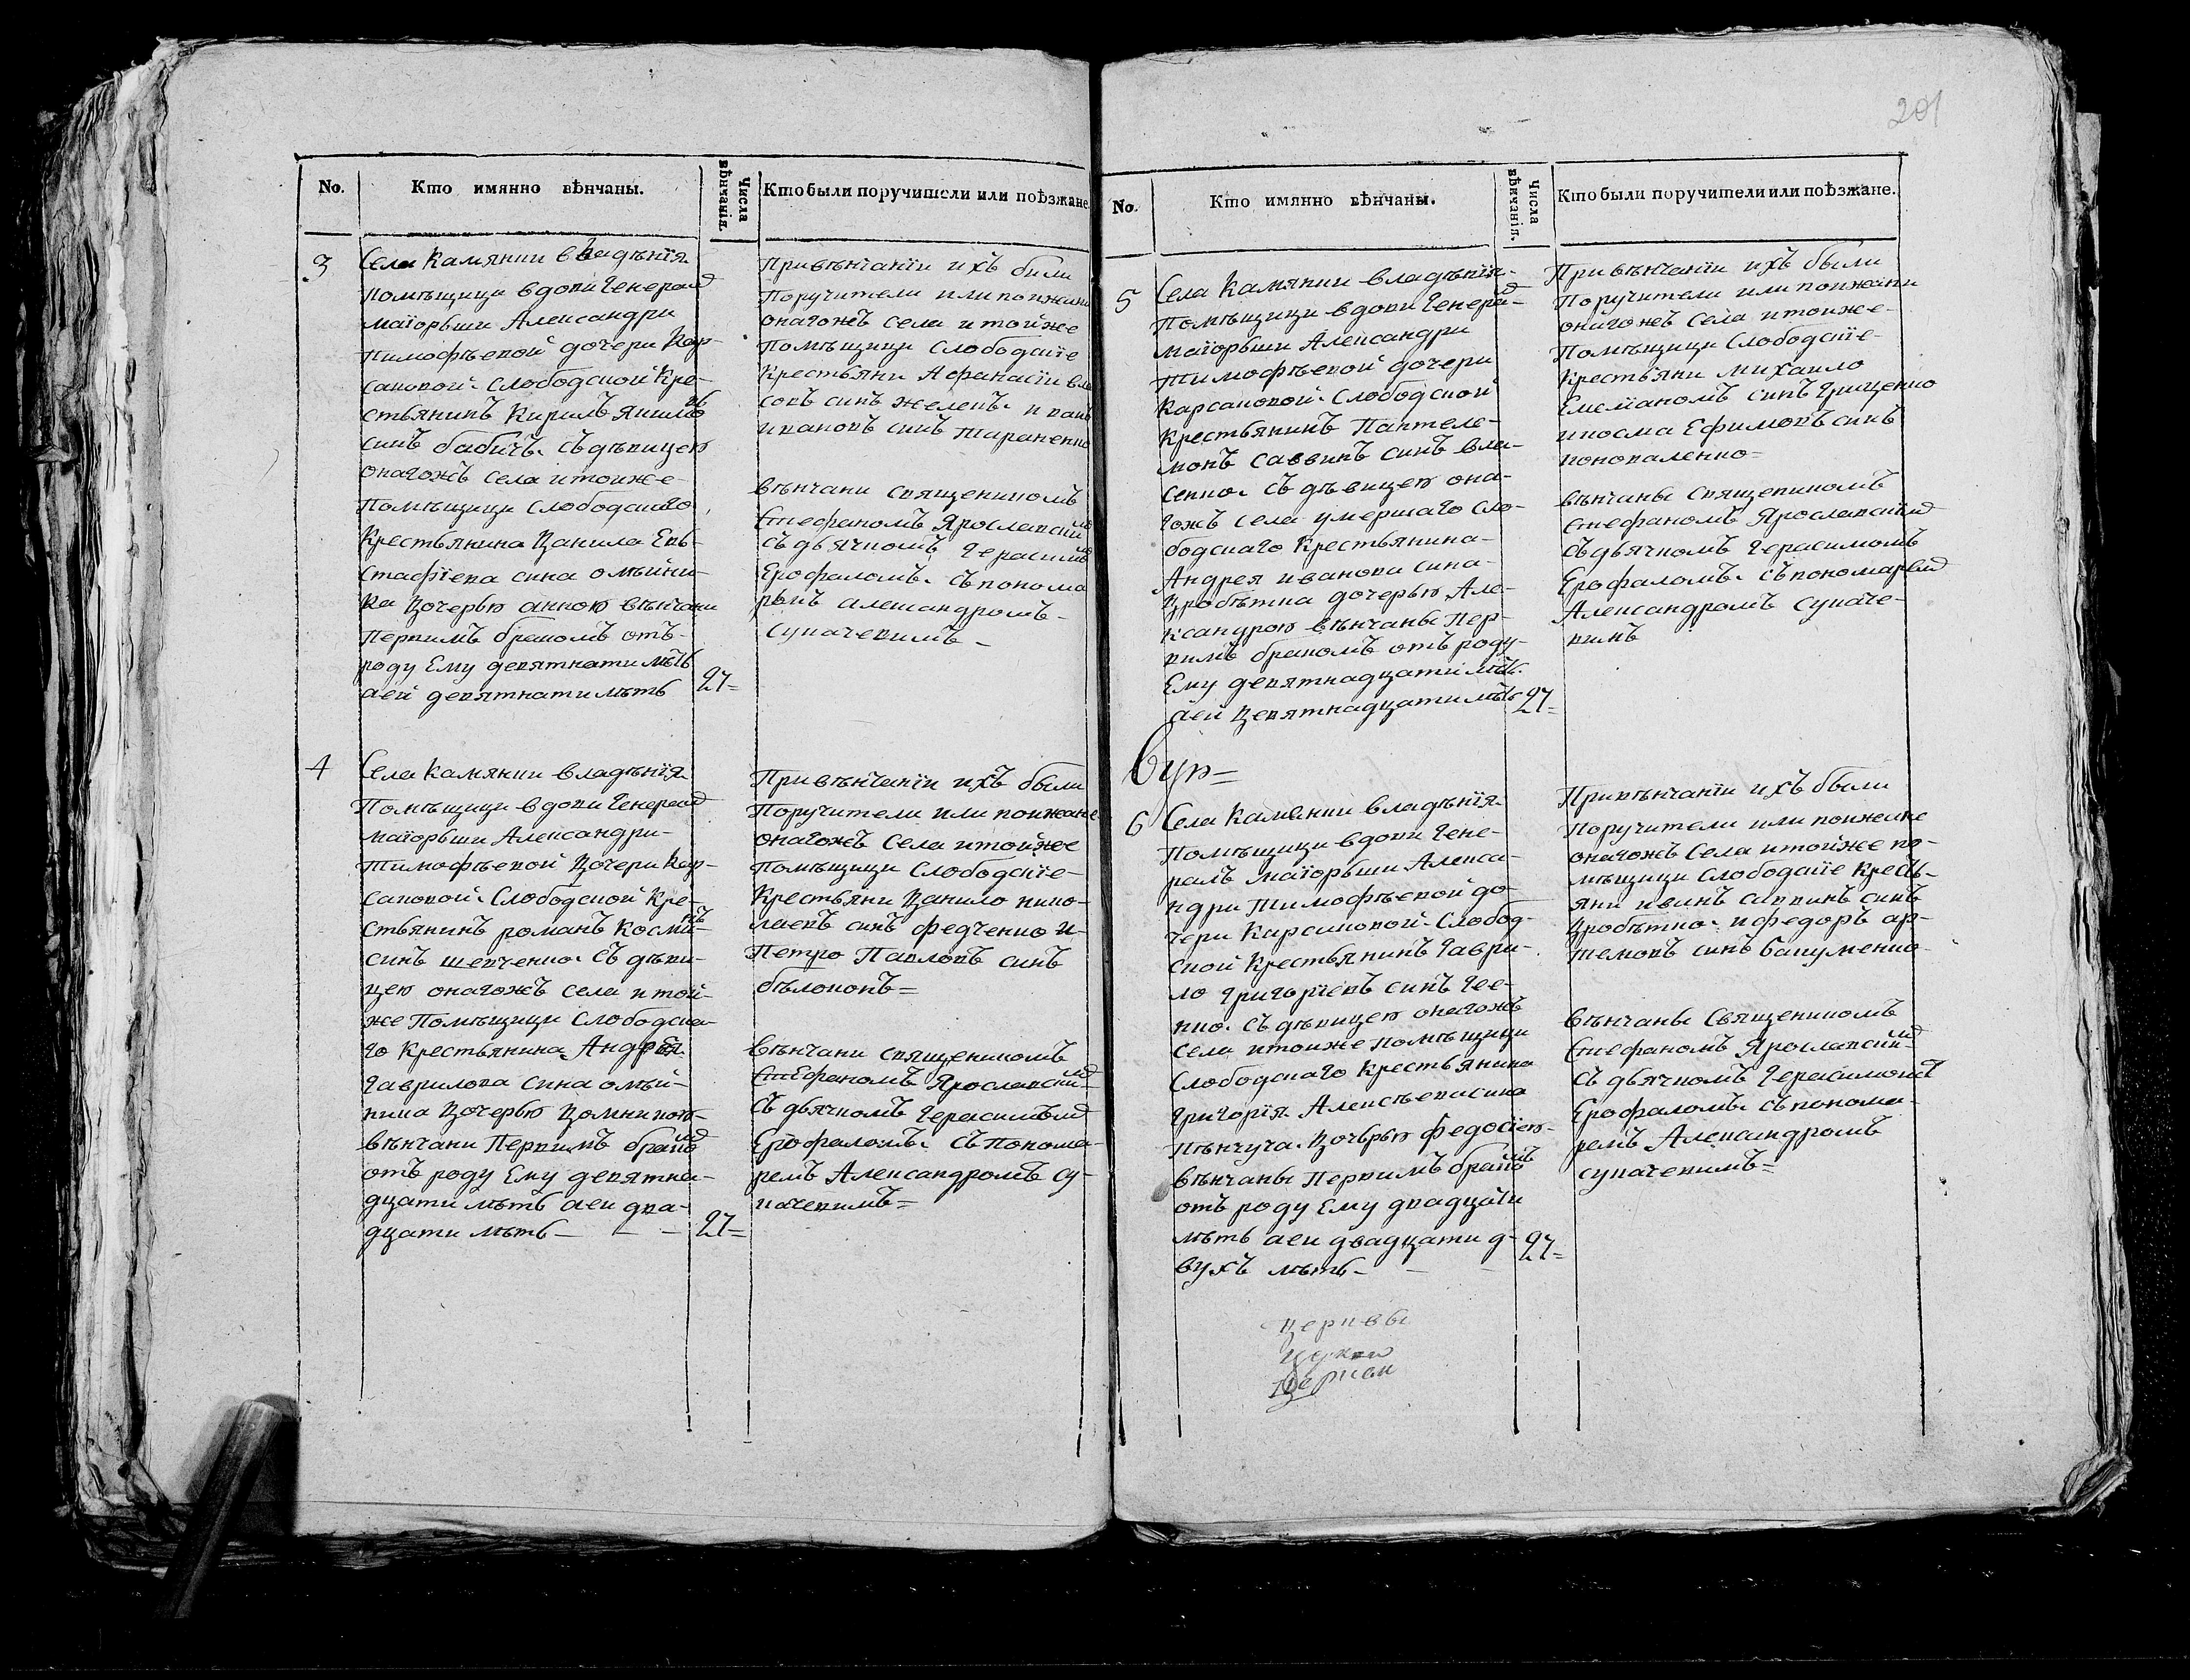 201
No.
Кто имянно вѣнчаны.
Числа вѣнчанія.
Кто были поручители или поѣзжане.
3
Села Камянки владѣнїя
Помѣщици вдови Генералъ
маїорьши Александри
Тимофѣевой дочери Кор-
саковой Слободской Кре-
стьянинъ Кирилъ
синъ бабичъ съ дѣвицею
онагожъ села и тоиже
Помѣщици Слободскаго
Крестьянина Данила Евъ-
стафїева сина олѣйни-
ка Дочерью анною вѣнчани
Первимъ бракомъ отъ
роду Ему девятнати лѣтъ
аей девятнати лѣтъ
27=
При вѣнчанїи ихъ били
Поручители или поижани
онагожъ села и тойже
Помѣщици Слободскїе
Крестьяни Афанасїи вла
совъ синъ желепъ и иванъ
ивановъ синъ тараненко
вѣнчани священикомъ
Стефаномъ Ярославскимъ
съ дьячкомъ Герасимомъ
Ерофаломъ съ понома
ромъ александромъ
сукачевимъ
4
Села Камянки владѣнїя
Помѣщици вдови Генералъ
маїорьши Александри
Тимофѣевой Дочери Кор-
саковой Слободской Кре-
стьянинъ романъ Косминъ
синъ шевченко съ дѣви-
цею онагожъ села и той-
же Помѣщици Слободска-
го Крестьянина Андрея
Гаврилова сина олѣй-
ника Дочерью Домникою
вѣнчани Первимъ бракомъ
отъ роду Ему девятна-
дцати лѣтъ аеи два-
дцати лѣтъ
27=
При вѣнчанїи ихъ были
Поручители или поижане
онагожъ Села и тойже
Помѣщици Слободскїе
Крестьяни Данило нико-
лаевъ синъ федченко и
Петро Павловъ синъ
бѣлоконъ=
вѣнчани священикомъ
Стефаномъ Ярославскимъ
съ дьячкомъ Герасимомъ
Ерофаломъ съ понома-
ремъ Александромъ су-
качевимъ=
No.
Кто имянно вѣнчаны.
Числа вѣнчанія.
Кто были поручители или поѣзжане.
5
Села Камянки владѣнїя
Помѣщици вдови Генералъ
маїорьши Александри
Тимофѣевой дочери
Карсаковой Слободской
Крестьянинъ Пантеле-
монъ саввинъ синъ вла-
сенко съ дѣвицею она-
гожъ села умершаго сло-
бодскаго Крестьянина
Андрея иванова сина
Дробѣтка дочерью Але-
ксандрою вѣнчаны Пер-
вимъ бракомъ отъ роду
Ему девятнадцати лѣтъ
аеи Девятнадцати лѣтъ
27=
При вѣнчанїи ихъ были
Поручители или поижани
онагожъ села и тоиже
Помѣщици Слободскїе
крестьяни михаило
Емелїаномъ синъ Гриценко
и косма Ефимовъ синъ
коноваленко=
вѣнчаны священикомъ
стефаномъ Ярославскимъ
съ дьячкомъ Герасимомъ
Ерофаломъ съ пономаремъ
Александромъ сукаче-
вимъ
6
Села Камянки владѣнїя
Помѣщици вдови Гене-
ралъ маїорьши Алекса-
ндри Тимофѣевой до-
чери Карсаковой Слобод-
ской Крестьянинъ Гаври-
ло григорїевъ синъ Гее-
нко съ дѣвицею онагожъ
села и тоиже помѣщици
Слободскаго Крестьянина
Григорїя Алексѣева сина
Дочерью Федосїею
вѣнчаны Первимъ бракомъ
отъ роду Ему двадцати
лѣтъ аеи двадцати д-
вухъ лѣтъ
27=
При вѣнчанїи ихъ были
Поручители или поижане
онагожъ Села и тойже по-
мѣщици слободскїе Кресть-
яни иванъ саввинъ синъ
Дробѣтко и федоръ ар-
темовъ синъ бакуменко
вѣнчаны Священикомъ
Стефаномъ Ярославскимъ
съ дьячкомъ Герасимомъ
Ерофаломъ съ понома-
ремъ Александромъ
сукачевимъ=
церквы